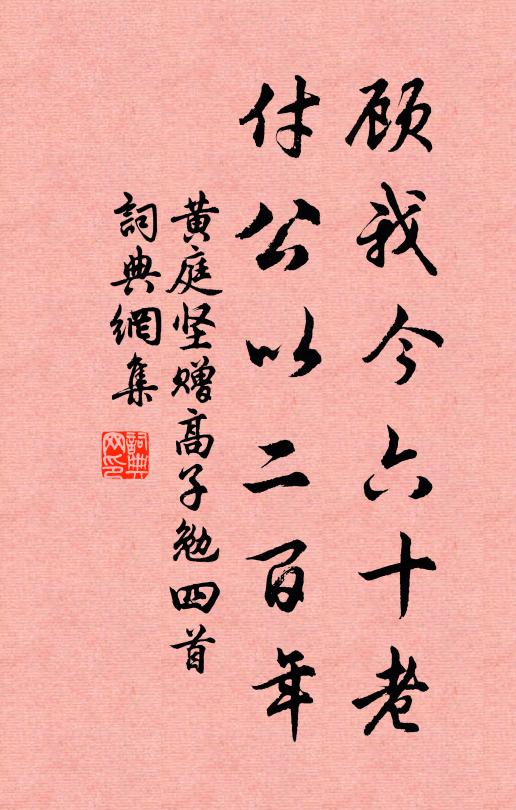 顾我今六十老
付公以二百年
黄庭坚赠高子勉四首
詞典網集
詞典网印